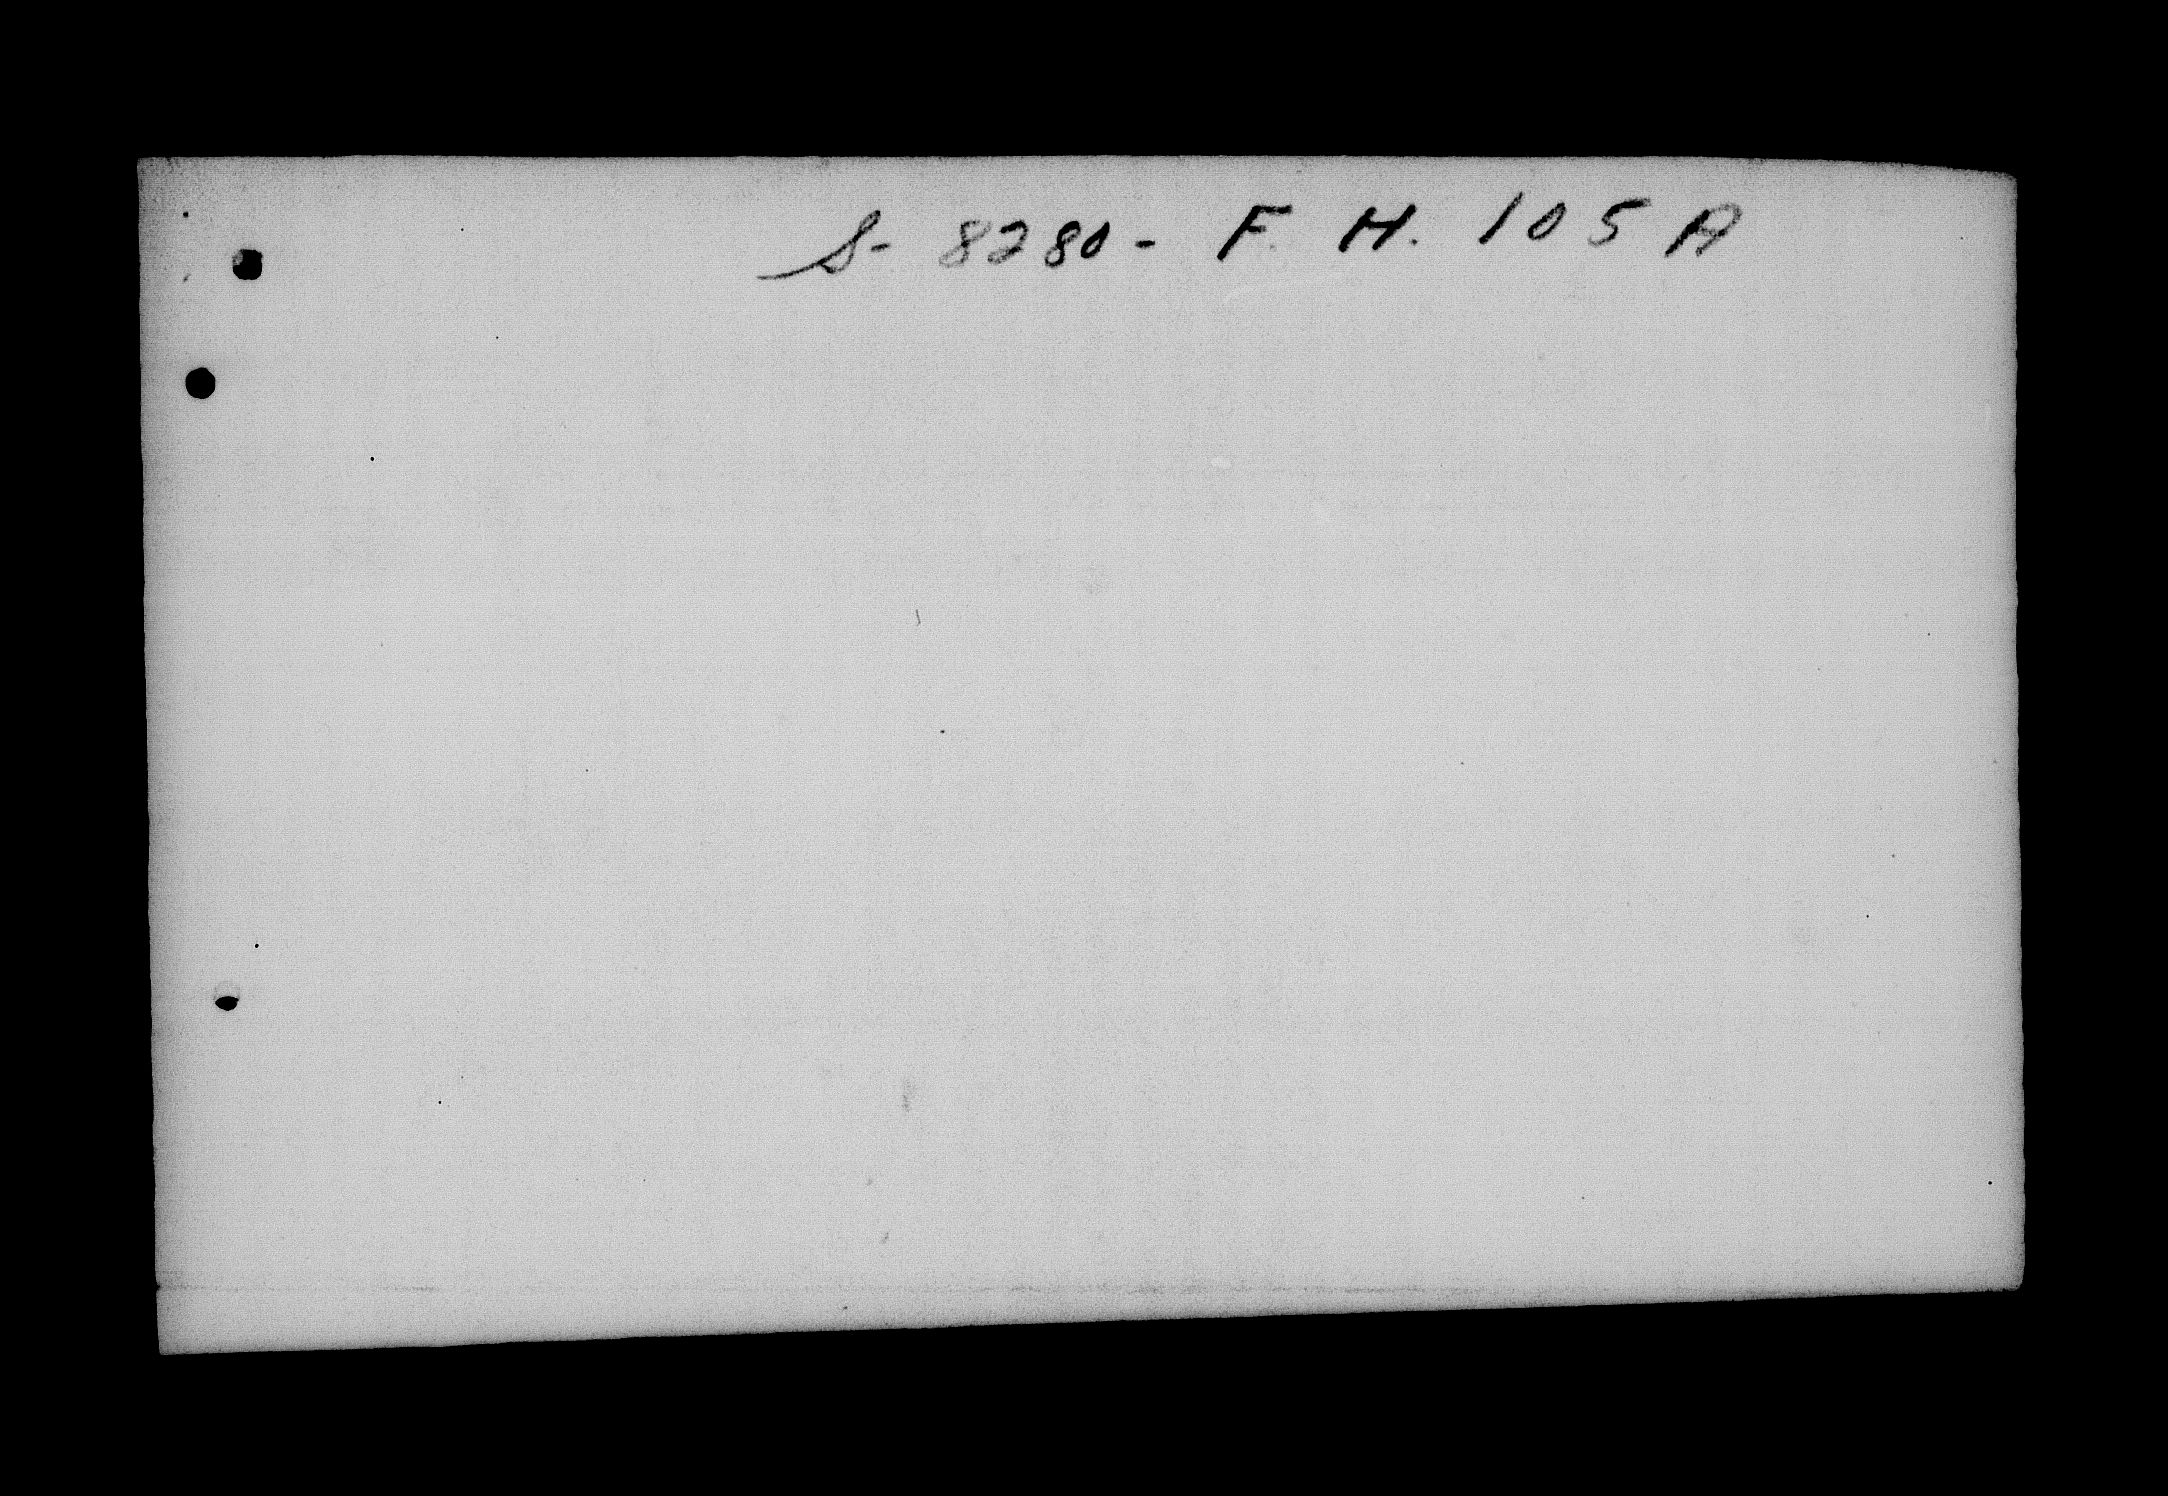 S- 8280- F. H. 105A